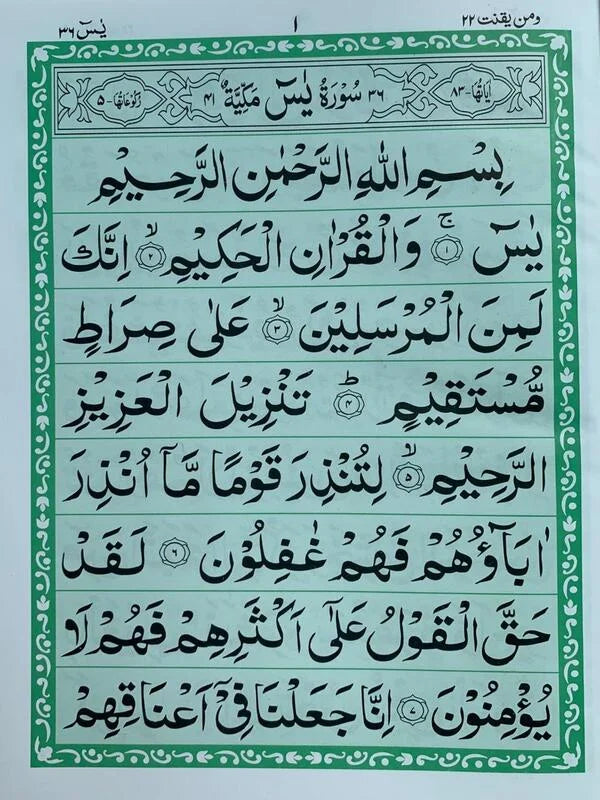 ومن يقنت ٢٢
١
يٰسٓ ٣٦
اٰيَاتُهَا - ٨٣
٣٦ سُوْرَةُ يٰسٓ مَكِّيَّةٌ ٤١
رُكُوْعَاتُهَا - ٥
بِسْمِ اللّٰهِ الرَّحْمٰنِ الرَّحِيْمِ
يٰسٓ ۚ ۝١ وَالْقُرْاٰنِ الْحَكِيْمِ ۙ ۝٢ اِنَّكَ
لَمِنَ الْمُرْسَلِيْنَ ۙ ۝٣ عَلٰى صِرَاطٍ
مُّسْتَقِيْمٍ ؕ ۝٤ تَنْزِيْلَ الْعَزِيْزِ
الرَّحِيْمِ ۙ ۝٥ لِتُنْذِرَ قَوْمًا مَّاۤ اُنْذِرَ
اٰبَآؤُهُمْ فَهُمْ غٰفِلُوْنَ ۝٦ لَقَدْ
حَقَّ الْقَوْلُ عَلٰٓى اَكْثَرِهِمْ فَهُمْ لَا
يُؤْمِنُوْنَ ۝٧ اِنَّا جَعَلْنَا فِيْۤ اَعْنَاقِهِمْ